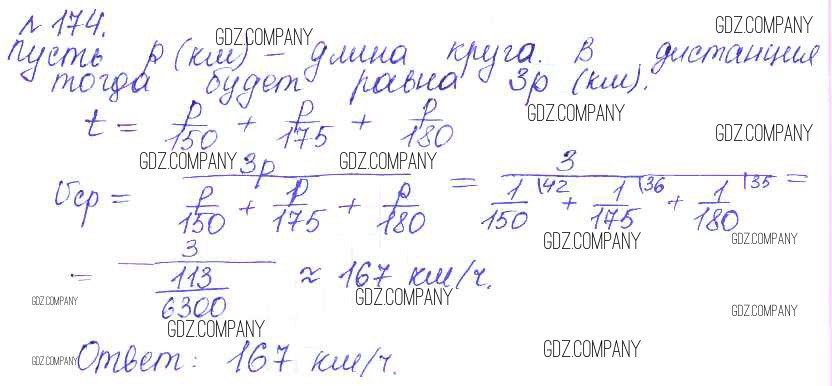 № 174.
GDZ.COMPANY
GDZ.COMPANY
Пусть p (км) — длина круга. В дистанция
тогда будет равна 3p (км).
GDZ.COMPANY
t = p/150 + p/175 + p/180
GDZ.COMPANY
GDZ.COMPANY
GDZ.COMPANY
υср = 3p / (p/150 + p/175 + p/180) = 3 / (1/150 \42 + 1/175 \36 + 1/180 \35) =
GDZ.COMPANY
GDZ.COMPANY
= 3 / (113/6300) ≈ 167 км/ч.
GDZ.COMPANY
GDZ.COMPANY
GDZ.COMPANY
GDZ.COMPANY
GDZ.COMPANY
Ответ: 167 км/ч.
GDZ.COMPANY